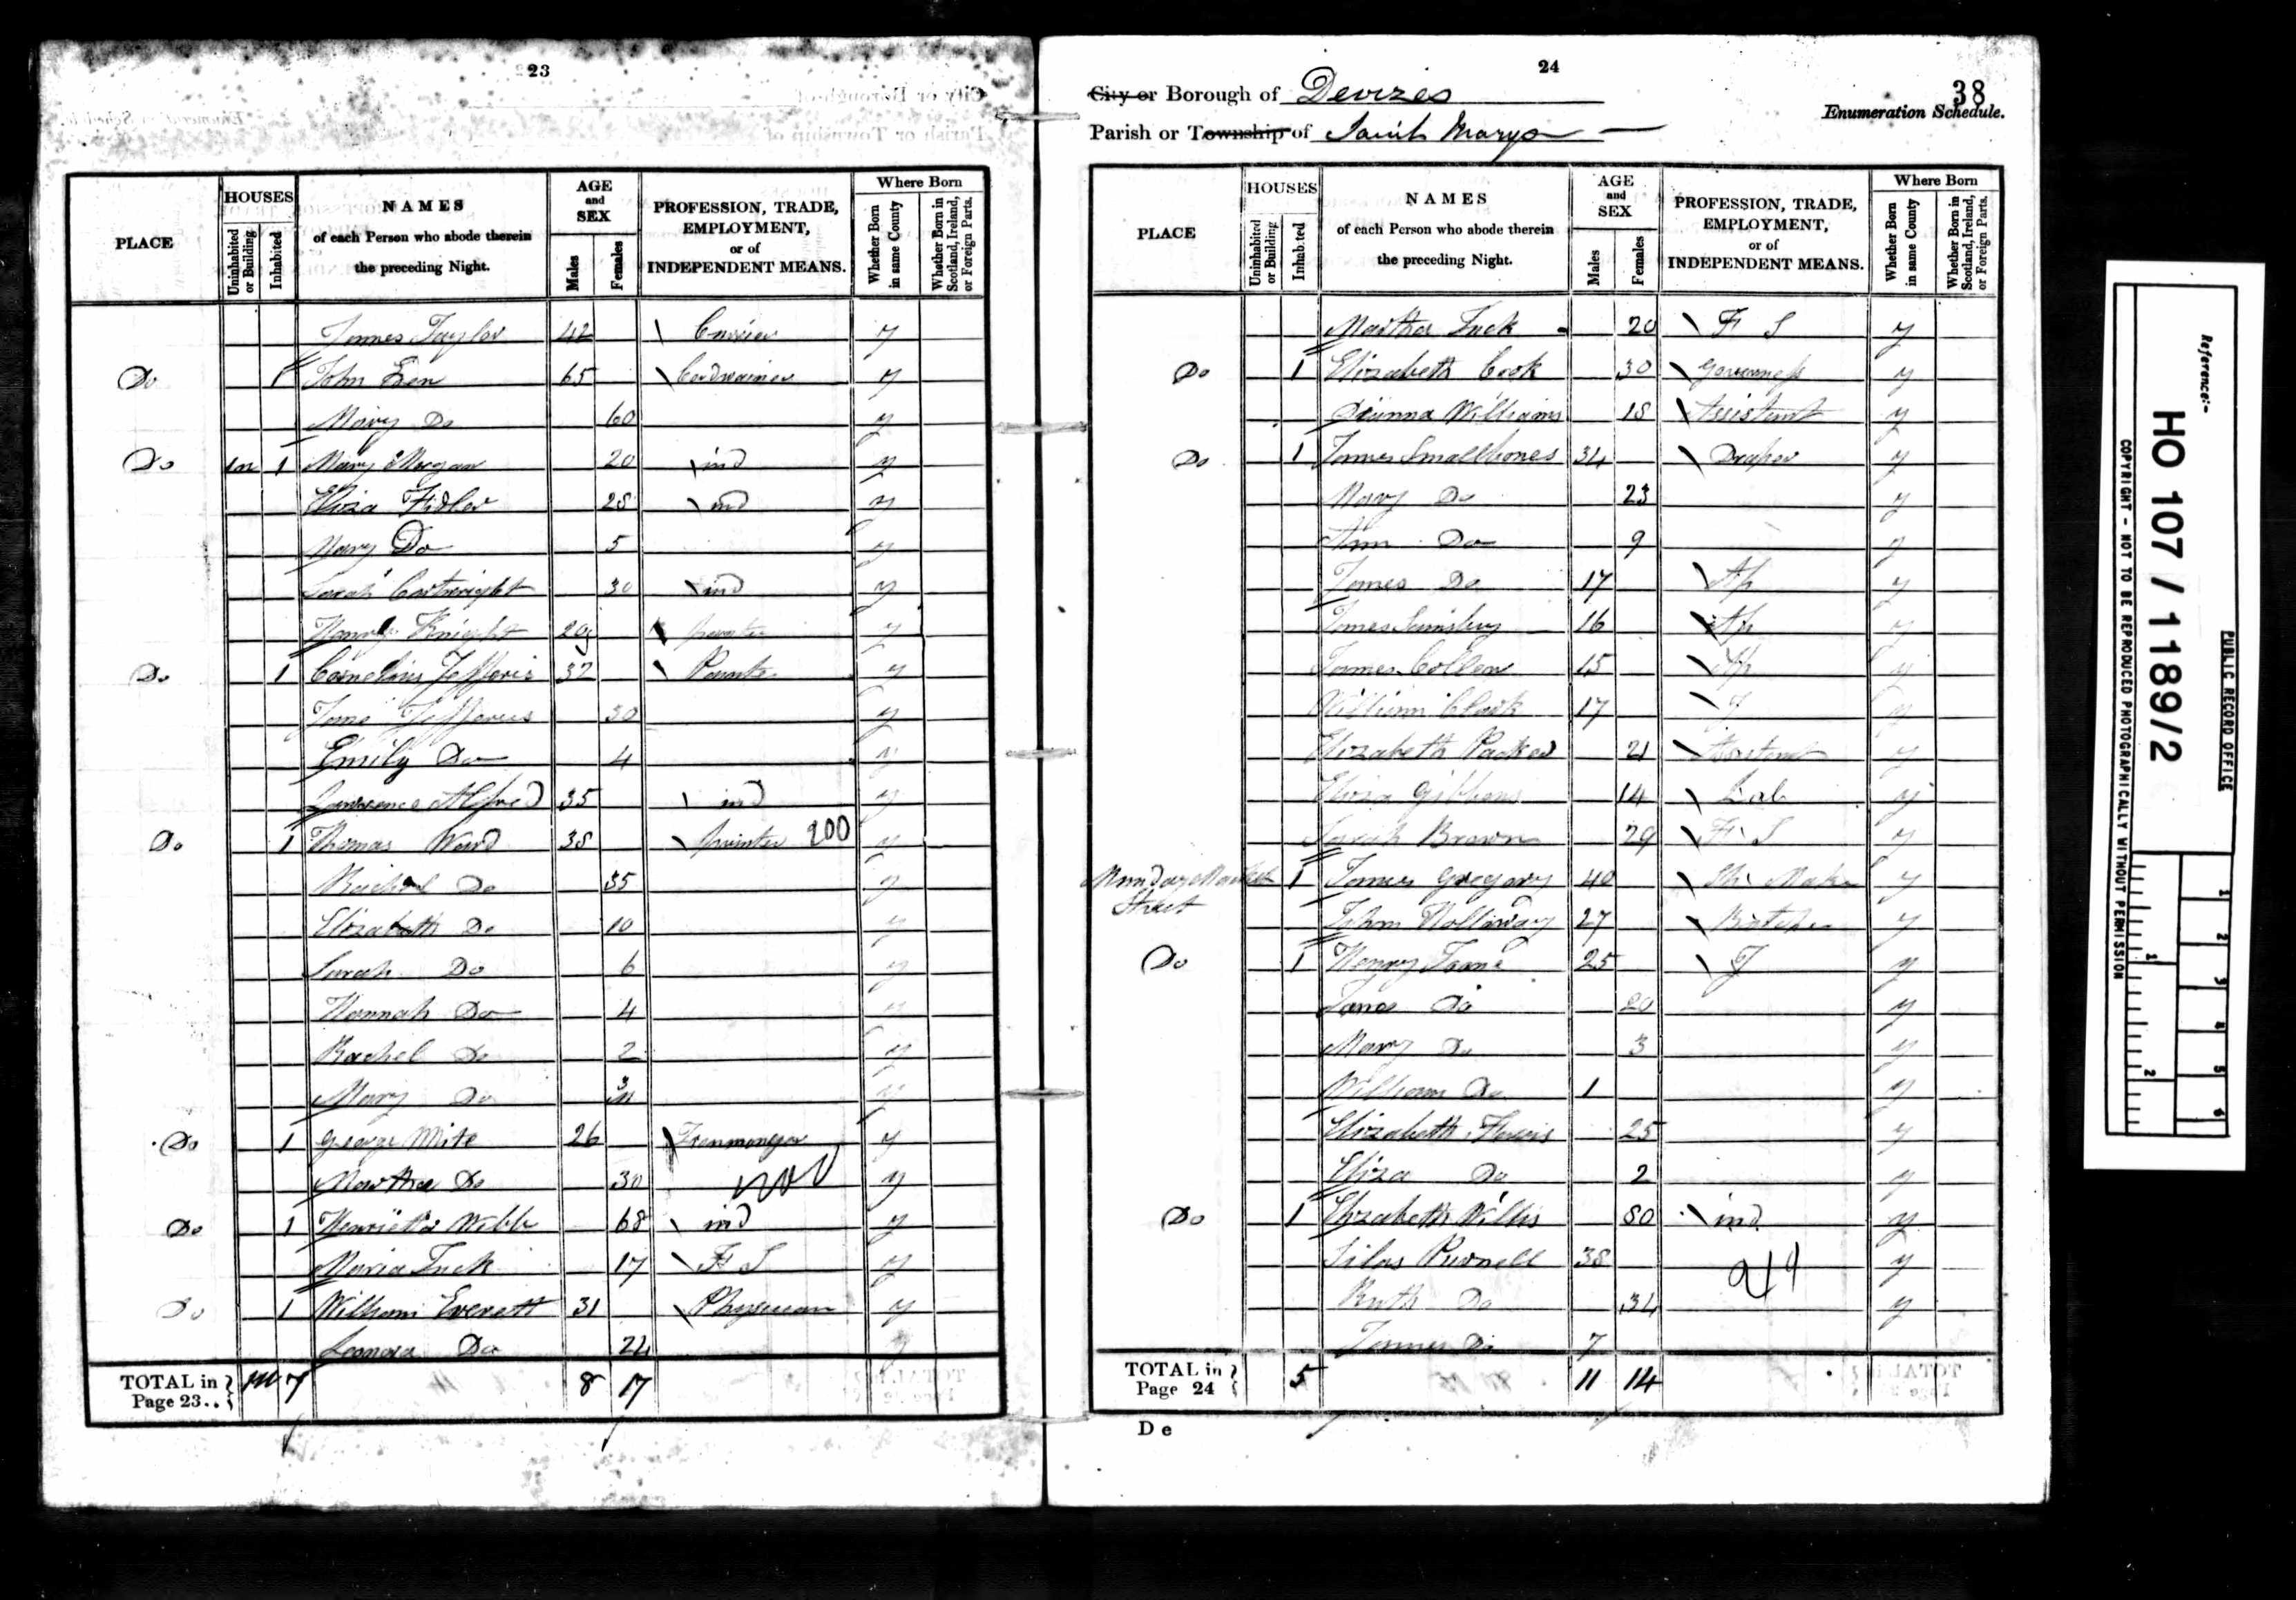 23
PLACE
HOUSES
Uninhabited or Building
Inhabited
NAMES
of each Person who abode therein
the preceding Night.
AGE
and
SEX
Males
Females
PROFESSION, TRADE,
EMPLOYMENT,
or of
INDEPENDENT MEANS.
Where Born
Whether Born in same County
Whether Born in Scotland, Ireland, or Foreign Parts.
James Taylor 42 Currier y
Do 1 John 65 Cordwainer y
Mary Do 60 y
Do 1u 1 Mary Morgan 20 ind y
Eliza Fidler 25 ind y
Mary Do 5 y
Sarah Cartwright 30 ind y
Henry Knight 20 y
Do 1 Cornelius Jefferis 32 y
Jane Jefferies 30 y
Emily Do 4 y
Lawrence Alfred 35 ind y
Do 1 Thomas Ward 38 printer 200 y
Rachel Do 35 y
Elizabeth Do 10 y
Sarah Do 6 y
Hannah Do 4 y
Rachel Do 2 y
Mary Do y
Do 1 George Mite 26 Ironmonger y
Martha Do 30 y
Do 1 Henrietta Webb 68 ind y
Maria Tuck 17 F S y
Do 1 William Everett 31 Physician y
Leonora Do 24 y
TOTAL in Page 23.. 1u 7 8 17
24
City or Borough of Devizes
Parish or Township of Saint Marys
38
Enumeration Schedule.
PLACE
HOUSES
Uninhabited or Building
Inhabited
NAMES
of each Person who abode therein
the preceding Night.
AGE
and
SEX
Males
Females
PROFESSION, TRADE,
EMPLOYMENT,
or of
INDEPENDENT MEANS.
Where Born
Whether Born in same County
Whether Born in Scotland, Ireland, or Foreign Parts.
Martha Tuck 20 F S y
Do 1 Elizabeth Cook 30 Governess y
Williams 18 Assistant y
Do 1 James Smallbones 34 Draper y
Mary Do 23 y
Ann Do 9 y
James Do 17 Ap y
James Sainsbury 16 Ap y
James Collen 15 Ap y
William Clark 17 J y
Elizabeth Packer 21 Assistant y
Eliza Gibbons 14 y
Sarah Brown 29 F S y
Munday Market Street 1 James Gregory 40 Sh Maker y
John Holloway 27 Butcher y
Do 1 Henry 25 J y
Jane Do 20 y
Mary Do 3 y
William Do 1 y
Elizabeth 25 y
Eliza Do 2 y
Do 1 Elizabeth Willis 80 ind y
Silas Purnell 38 y
Ruth Do 34 y
James Do 7
TOTAL in Page 24 5 11 14
De
Reference:-
HO 107 / 1189/2
PUBLIC RECORD OFFICE
COPYRIGHT - NOT TO BE REPRODUCED PHOTOGRAPHICALLY WITHOUT PERMISSION
1
2
3
4
5
6
1
2